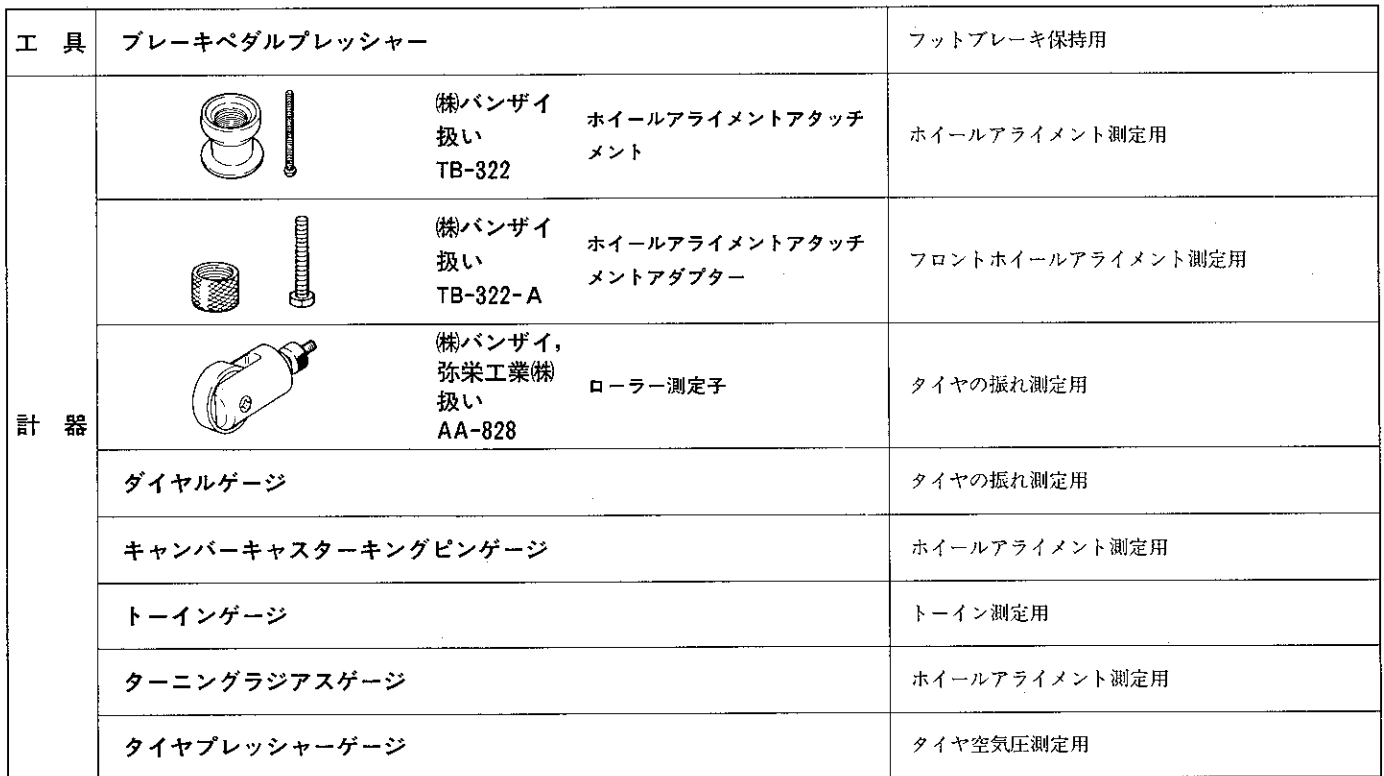 工 具 ブレーキペダルプレッシャー フットブレーキ保持用
㈱バンザイ
扱い
TB-322
ホイールアライメントアタッチ
メント
ホイールアライメント測定用
㈱バンザイ
扱い
TB-322-A
ホイールアライメントアタッチ
メントアダプター
フロントホイールアライメント測定用
計 器
㈱バンザイ,
弥栄工業㈱
扱い
AA-828
ローラー測定子
タイヤの振れ測定用
ダイヤルゲージ タイヤの振れ測定用
キャンバーキャスターキングピンゲージ ホイールアライメント測定用
トーインゲージ トーイン測定用
ターニングラジアスゲージ ホイールアライメント測定用
タイヤプレッシャーゲージ タイヤ空気圧測定用